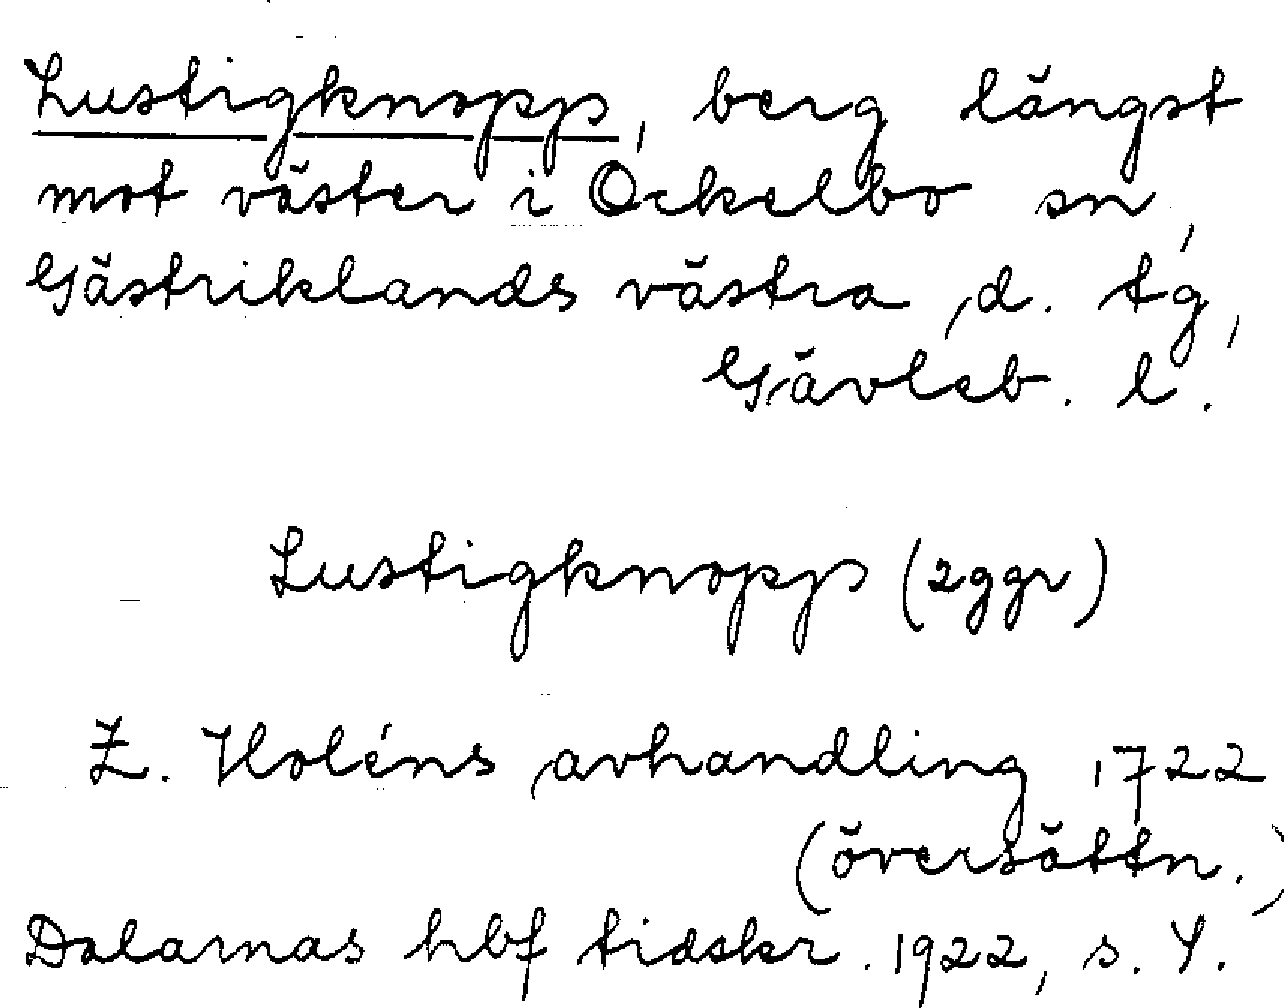 Lustigknopp, berg längst
mot väster i Ockelbo sn,
Gästriklands västra d. tg,
Gävleb. l.
Lustigknopp (2 ggr)
Z. Holéns avhandling 1722
(översättn.)
Dalarnas hbf tidskr. 1922, s. Y.